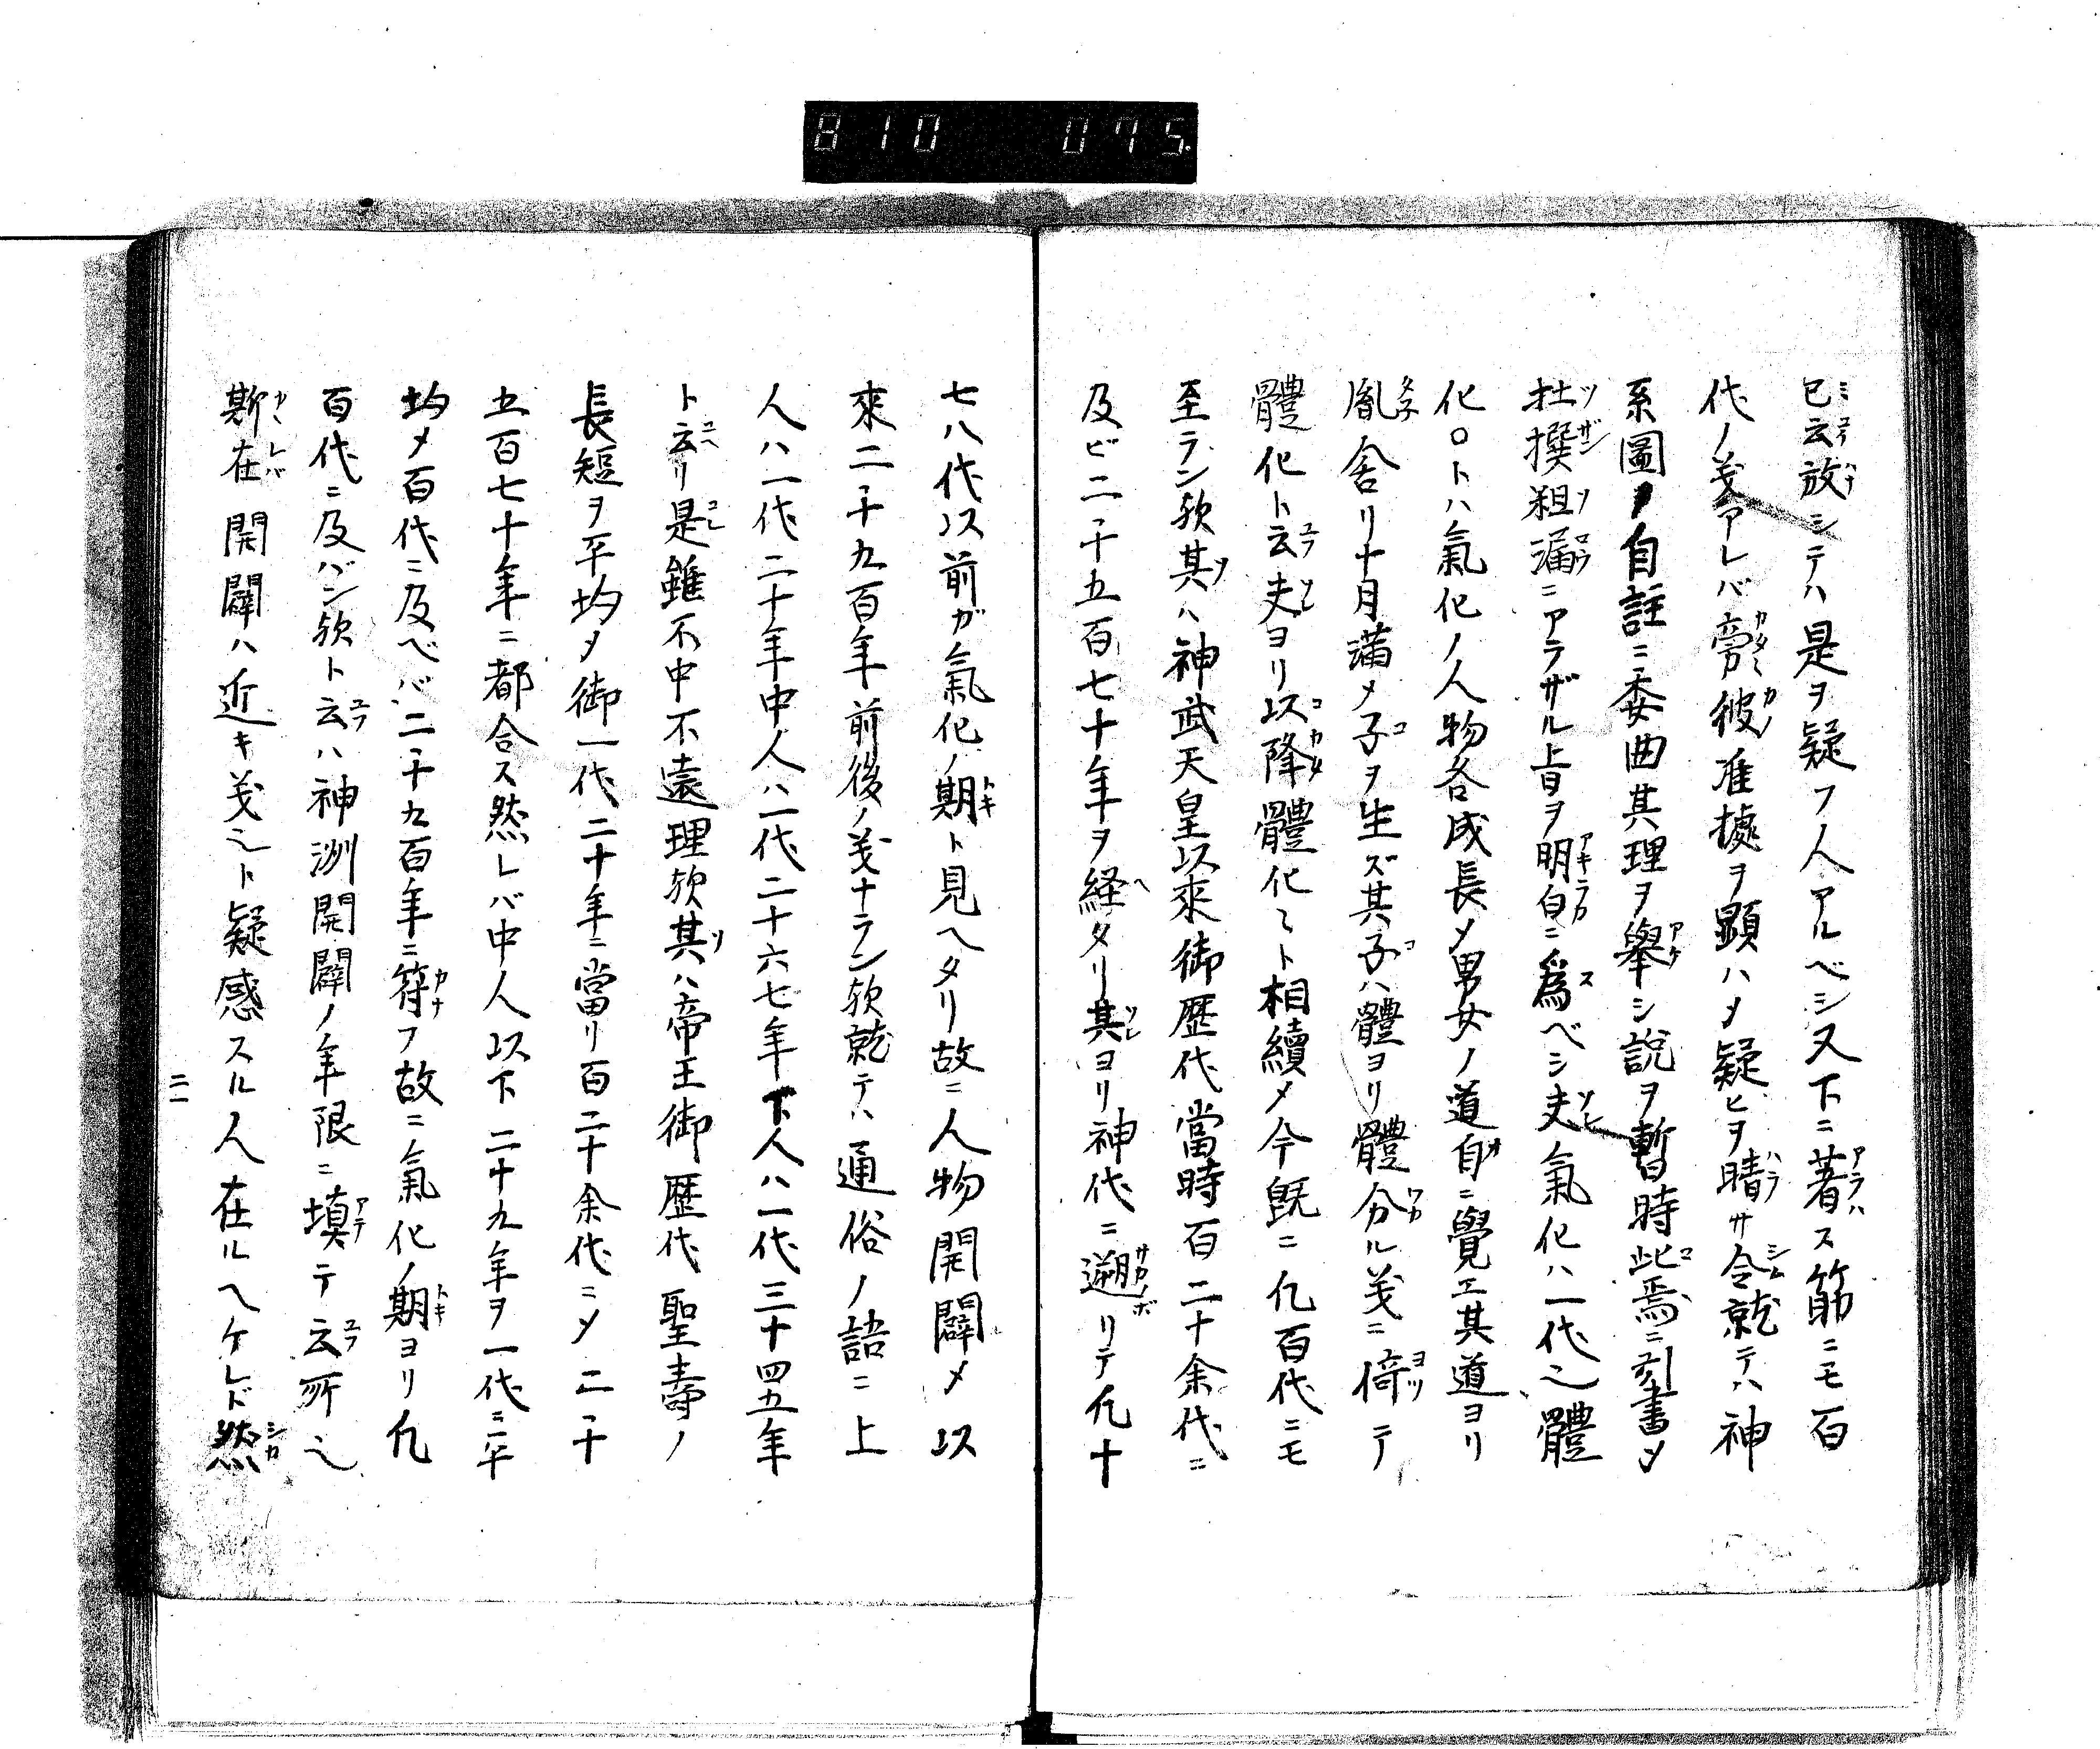 810 075
已云放シテハ是ヲ疑フ人アルベシ又下ニ著ス筋ニモ百
代ノ義アレバ旁彼准據ヲ顕ハメ疑ヒヲ晴サ令就テハ神
系圖ヲ自註ニ委曲其理ヲ舉シ説ヲ暫時此焉ニ刻書メ
杜撰粗漏ニアラザル上旨ヲ明白ニ爲ベシ夫氣化ハ一代之體
化〇トハ氣化ノ人物各成長メ男女ノ道自ニ覺エ其道ヨリ
胤舎リ十月満メ子ヲ生ズ其子ハ體ヨリ體分ル義ニ倚テ
體化ト云夫ヨリ以降體化〻ト相續メ今既ニ凢百代ニモ
至ラン欤其ハ神武天皇以來御歴代當時百二十余代ニ
及ビ二千五百七十年ヲ経タリ其ヨリ神代ニ遡リテ凢十
七八代以前ガ氣化ノ期ト見ヘタリ故ニ人物開闢メ以
來二千九百年前後ノ義ナラン欤就テハ通俗ノ語ニ上
人ハ一代二十年中人ハ一代二十六七年下人ハ一代三十四五年
ト云リ是雖不中不遠理欤其ハ帝王御歴代聖壽ノ
長短ヲ平均メ御一代二十年ニ當リ百二十余代ニメ二千
五百七十年ニ都合ス然レバ中人以下二十九年ヲ一代ニ平
均メ百代ニ及ベバ二千九百年ニ符フ故ニ氣化ノ期ヨリ凢
百代ニ及バン欤ト云ハ神洲開闢ノ年限ニ填テ云所之
斯在開闢ハ近キ義之ト疑惑スル人在ルヘケレド然
二一